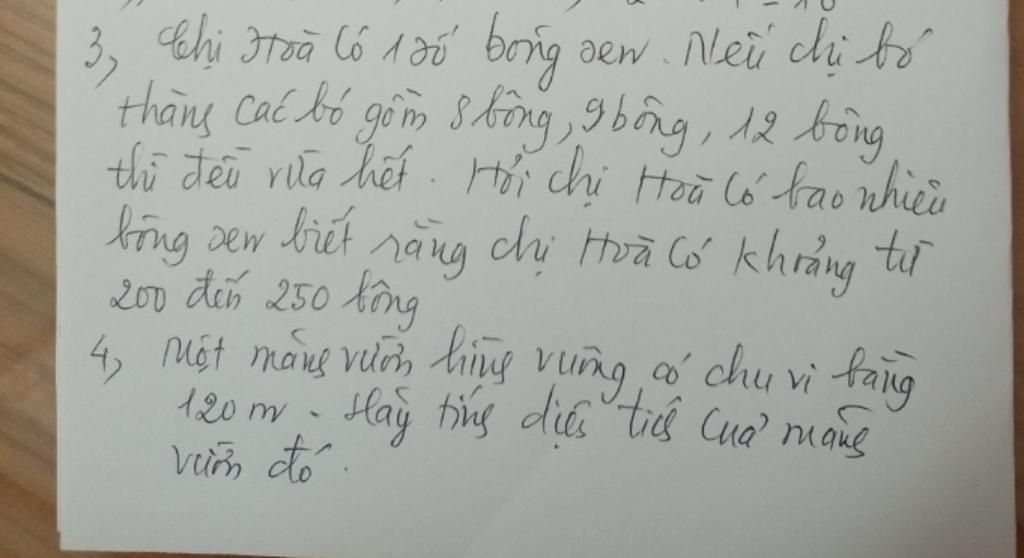 3, Chị Hoà có 1 số bông sen. Nếu chị bó
thành các bó gồm 8 bông, 9 bông, 12 bông
thì đều vừa hết. Hỏi chị Hoà có bao nhiêu
bông sen biết rằng chị Hoà có khoảng từ
200 đến 250 bông
4, Một mảnh vườn hình vuông có chu vi bằng
120 m. Hãy tính diện tích của mảnh
vườn đó.